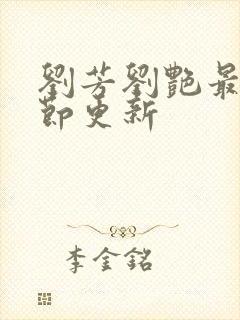 劉芳劉艷最
節更新
李金銘